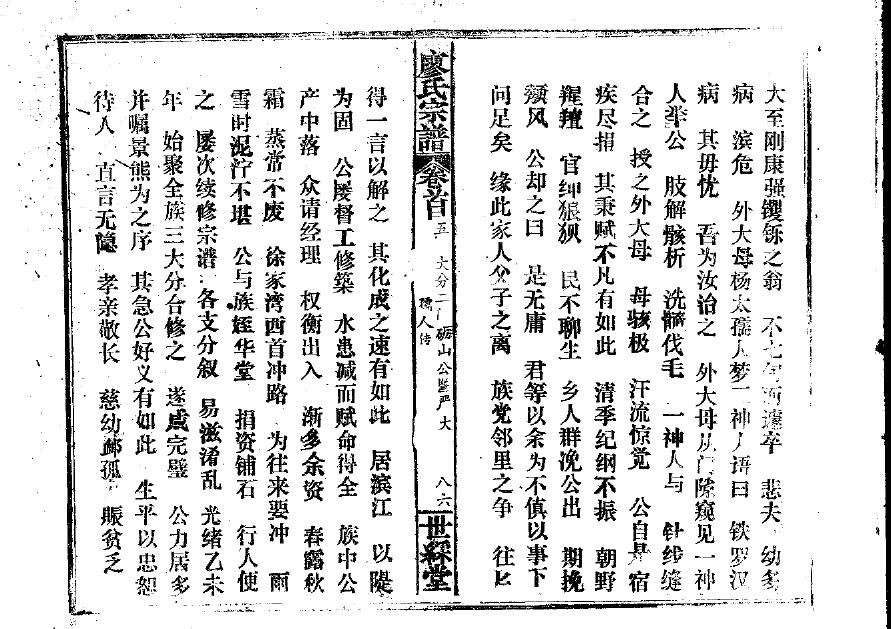 大至刚康强矍铄之翁 不七旬而遽卒 悲夫 幼多
病 濒危 外大母杨太孺人梦二神人语曰 铁罗汉
病 其毋忧 吾为汝治之 外大母从门隙窥见一神
人挛公 肢解骸析 洗髓伐毛 一神人与 针线缝
合之 授之外大母 母骇极 汗流惊觉 公自是宿
疾尽捐 其秉赋不凡有如此 清季纪纲不振 朝野
腥羶 官绅狼狈 民不聊生 乡人群浼公出 期挽
颓风 公却之曰 是无庸 君等以余为不慎以事下
问足矣 缘此家人父子之离 族党邻里之争 往匕
廖氏宗譜 卷首 五 大分二门 砺山公暨严大孺人传 八六 世綵堂
得一言以解之 其化成之速有如此 居滨江 以隄
为固 公屡督工修築 水患减而赋命得全 族中公
产中落 众请经理 权衡出入 渐多余资 春露秋
霜 蒸常不废 徐家湾西首冲路 为往来要冲 雨
雪时泥泞不堪 公与族姪华堂 捐资铺石 行人便
之 屡次续修宗谱 各支分叙 易滋淆乱 光绪乙未
年 始聚全族三大分合修之 遂成完璧 公力居多
并嘱景熊为之序 其急公好义有如此 生平以忠恕
待人 直言无隐 孝亲敬长 慈幼邮孤 赈贫乏